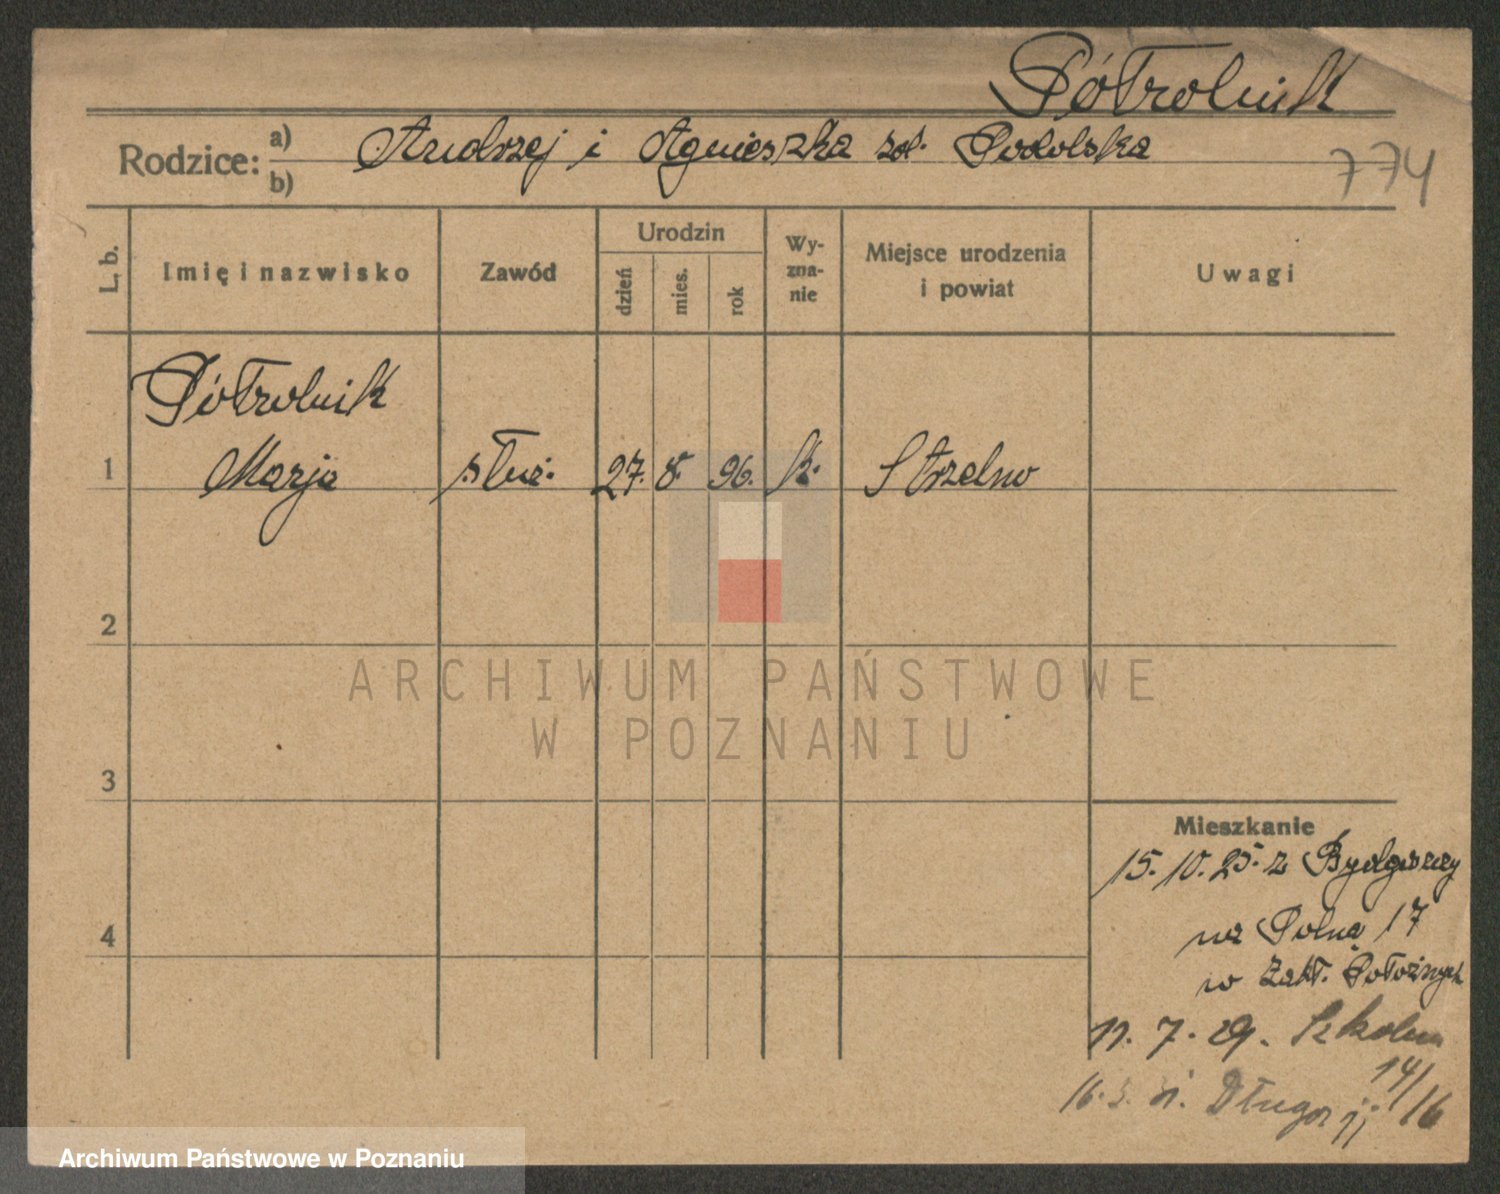 Półrolnik
Rodzice: a) Andrzej i Agnieszka zd. Podolska
b)
774
L. b.
Imię i nazwisko
Zawód
Urodzin
dzień
mies.
rok
Wy-
zna-
nie
Miejsce urodzenia
i powiat
Uwagi
Półrolnik
1 Marja służ. 27. 8. 96. k. Strzelno
2
ARCHIWUM PAŃSTWOWE
W POZNANIU
3
Mieszkanie
15.10.25. z Bydgoszczy
4
na Polną 17
w Zakł. Położnych
11. 7. 29. Szkolna
14/16
16. 3. Długa 11
Archiwum Państwowe w Poznaniu